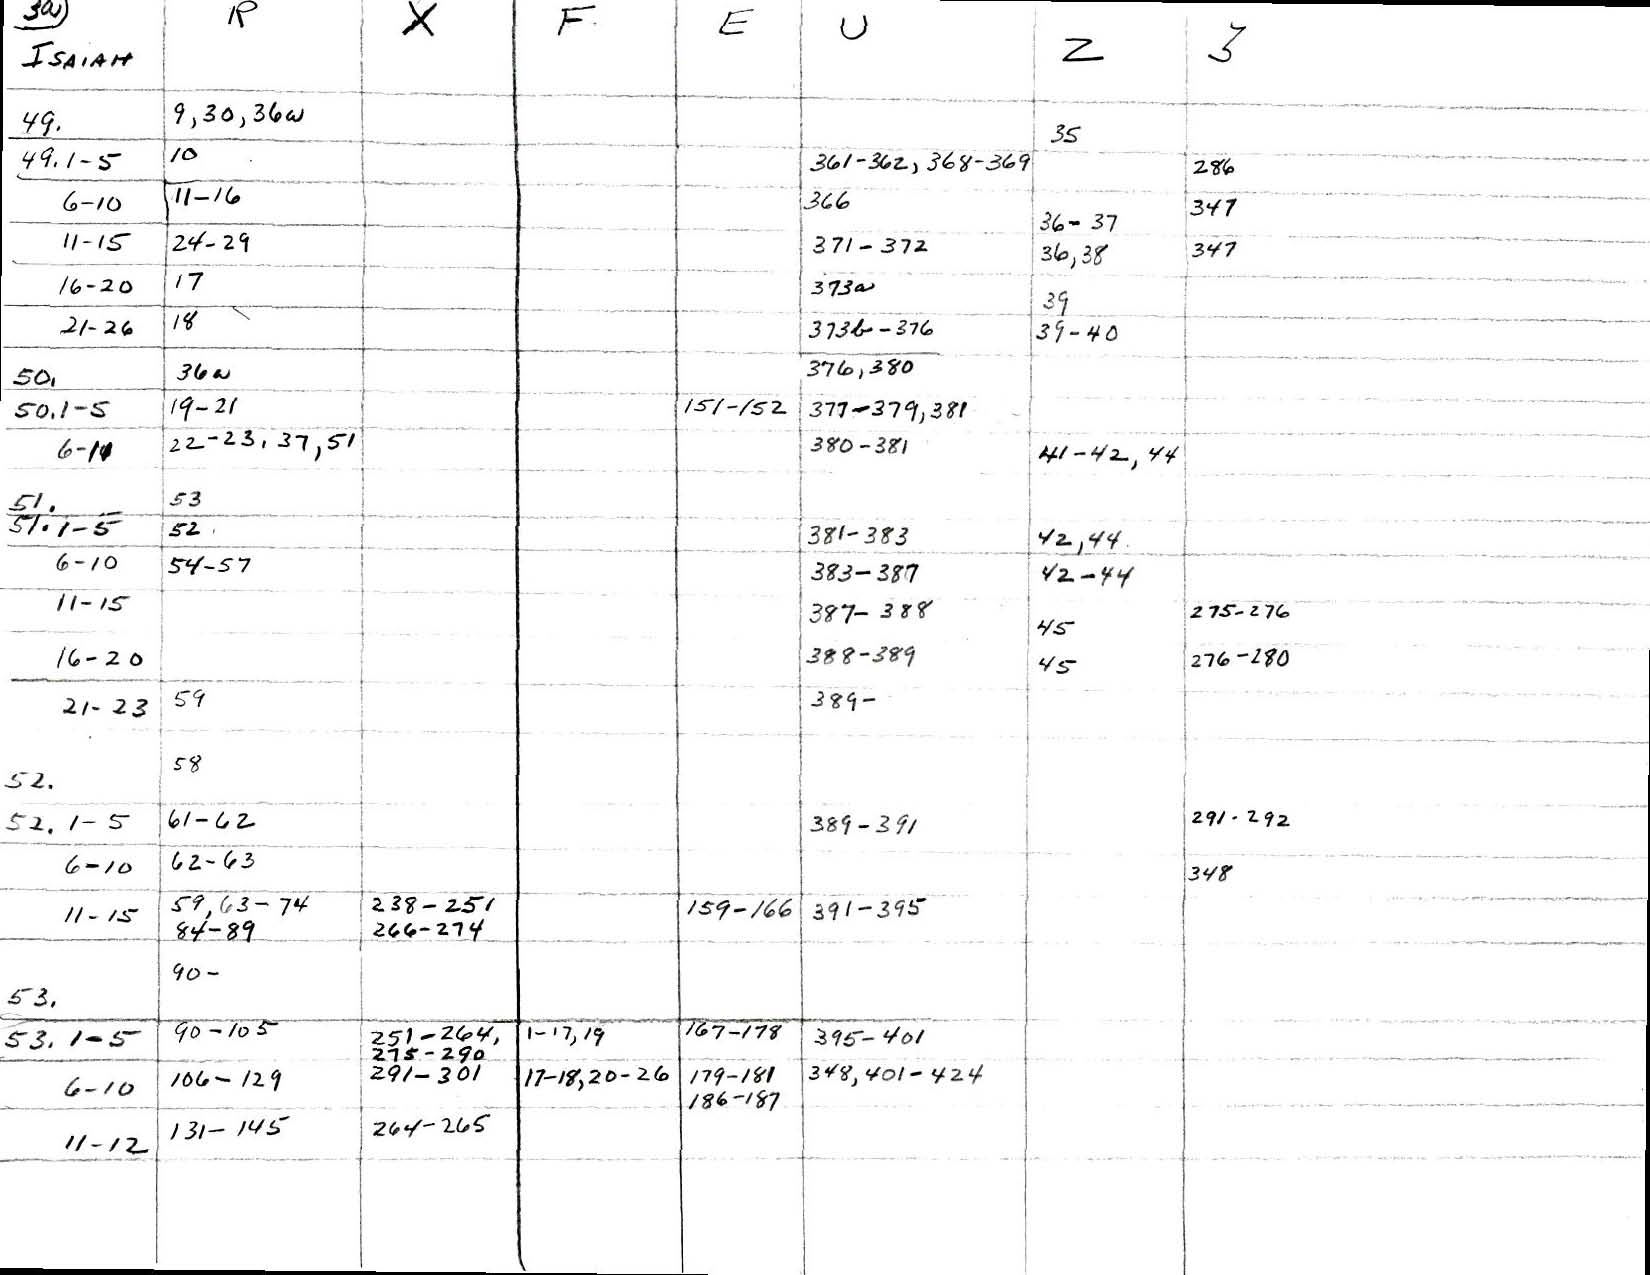 3a)
ISAIAH R X F E U Z ʒ
49. 9, 30, 36a 35
49. 1-5 10 361-362, 368-369 286
6-10 11-16 366 36-37 347
11-15 24-29 371-372 36, 38 347
16-20 17 373a 39
21-26 18 373b-376 39-40
50. 36a 376, 380
50. 1-5 19-21 151-152 377-379, 381
6-11 22-23, 37, 51 380-381 41-42, 44
51. 53
51. 1-5 52 381-383 42, 44
6-10 54-57 383-387 42-44
11-15 387-388 45 275-276
16-20 388-389 45 276-280
21-23 59 389-
52. 58
52. 1-5 61-62 389-391 291-292
6-10 62-63 348
11-15 59, 63-74 238-251 159-166 391-395
84-89 266-274
53. 90-
53. 1-5 90-105 251-264, 1-17, 19 167-178 395-401
275-290
6-10 106-129 291-301 17-18, 20-26 179-181 348, 401-424
186-187
11-12 131-145 264-265